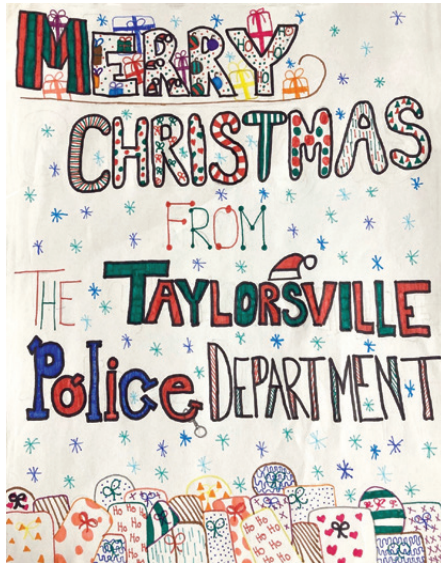 MERRY
CHRISTMAS
FROM
THE TAYLORSVILLE
Police DEPARTMENT